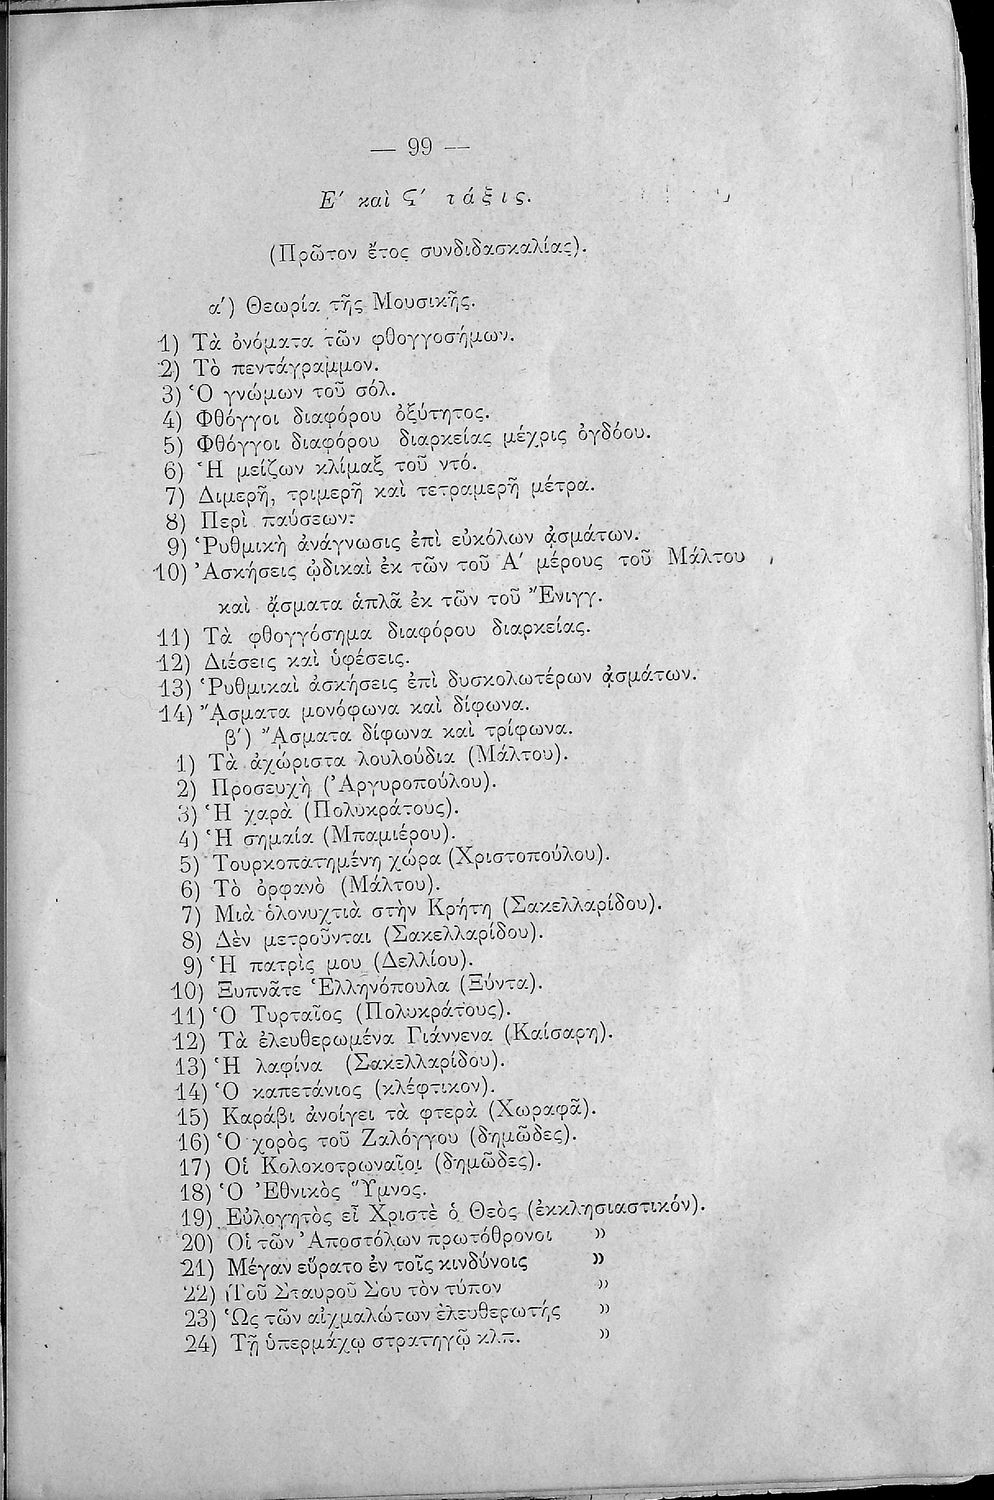 — 99 —
Ε′ καὶ Ϛ′ τάξις.
(Πρῶτον ἔτος συνδιδασκαλίας).
α′) Θεωρία τῆς Μουσικῆς.
1) Τὰ ὀνόματα τῶν φθογγοσήμων.
2) Τὸ πεντάγραμμον.
3) Ὁ γνώμων τοῦ σόλ.
4) Φθόγγοι διαφόρου ὀξύτητος.
5) Φθόγγοι διαφόρου διαρκείας μέχρις ὀγδόου.
6) Ἡ μείζων κλίμαξ τοῦ ντό.
7) Διμερῆ, τριμερῆ καὶ τετραμερῆ μέτρα.
8) Περὶ παύσεων.
9) Ῥυθμικὴ ἀνάγνωσις ἐπὶ εὐκόλων ᾀσμάτων.
10) Ἀσκήσεις ᾠδικαὶ ἐκ τῶν τοῦ Α′ μέρους τοῦ Μάλτου
καὶ ᾄσματα ἁπλᾶ ἐκ τῶν τοῦ Ἔνιγγ.
11) Τὰ φθογγόσημα διαφόρου διαρκείας.
12) Διέσεις καὶ ὑφέσεις.
13) Ῥυθμικαὶ ἀσκήσεις ἐπὶ δυσκολωτέρων ᾀσμάτων.
14) ᾌσματα μονόφωνα καὶ δίφωνα.
β′) ᾌσματα δίφωνα καὶ τρίφωνα.
1) Τὰ ἀχώριστα λουλούδια (Μάλτου).
2) Προσευχὴ (Ἀργυροπούλου).
3) Ἡ χαρὰ (Πολυκράτους).
4) Ἡ σημαία (Μπαμιέρου).
5) Τουρκοπατημένη χώρα (Χριστοπούλου).
6) Τὸ ὀρφανὸ (Μάλτου).
7) Μιὰ ὁλονυχτιὰ στὴν Κρήτη (Σακελλαρίδου).
8) Δὲν μετροῦνται (Σακελλαρίδου).
9) Ἡ πατρὶς μου (Δελλίου).
10) Ξυπνᾶτε Ἑλληνόπουλα (Ξύντα).
11) Ὁ Τυρταῖος (Πολυκράτους).
12) Τὰ ἐλευθερωμένα Γιάννενα (Καίσαρη).
13) Ἡ λαφίνα (Σακελλαρίδου).
14) Ὁ καπετάνιος (κλέφτικον).
15) Καράβι ἀνοίγει τὰ φτερὰ (Χωραφᾶ).
16) Ὁ χορὸς τοῦ Ζαλόγγου (δημῶδες).
17) Οἱ Κολοκοτρωναῖοι (δημῶδες).
18) Ὁ Ἐθνικὸς Ὕμνος.
19) Εὐλογητὸς εἶ Χριστὲ ὁ Θεὸς (ἐκκλησιαστικόν).
20) Οἱ τῶν Ἀποστόλων πρωτόθρονοι »
21) Μέγαν εὕρατο ἐν τοῖς κινδύνοις »
22) Τοῦ Σταυροῦ Σου τὸν τύπον »
23) Ὡς τῶν αἰχμαλώτων ἐλευθερωτής »
24) Τῇ ὑπερμάχῳ στρατηγῷ κλπ. »